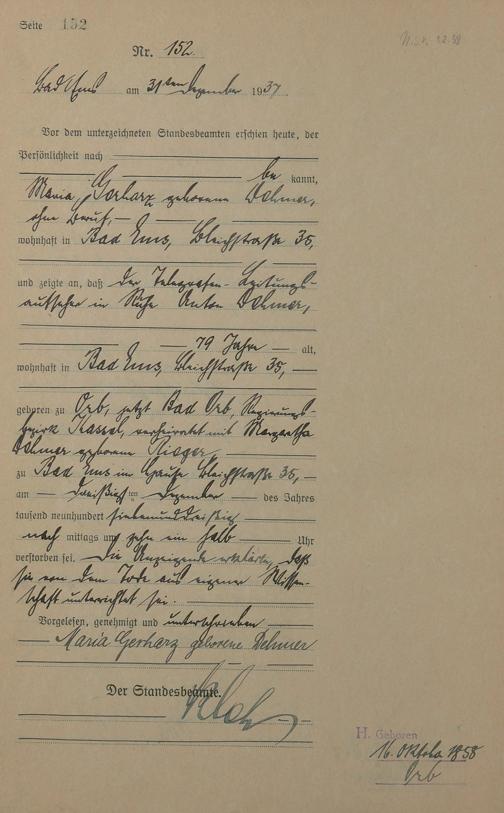 Seite 152
Nr. 152.
Bad Ems am 31ten Dezember 1937.
Vor dem unterzeichneten Standesbeamten erschien heute, der
Persönlichkeit nach
be kannt,
Maria Gerharz geborene Dehmer,
ohne Beruf,
wohnhaft in Bad Ems, Bleichstraße 35,
und zeigte an, daß der Telegrafen-Leitungs-
aufseher in Ruhe Anton Dehmer,
79 Jahre alt,
wohnhaft in Bad Ems, Bleichstraße 35,
geboren zu Orb, jetzt Bad Orb, Regierungs-
bezirk Kassel, verheiratet mit Margaretha
Dehmer geborene Rieger,
zu Bad Ems im Hause Bleichstraße 35,
am dreißigsten Dezember des Jahres
tausend neunhundert siebenunddreißig
nach mittags um zehn ein halb Uhr
verstorben sei. Die Anzeigende erklärte, daß
sie von dem Tode aus eigener Wissen-
schaft unterrichtet sei.
Vorgelesen, genehmigt und unterschrieben
Maria Gerharz geborene Dehmer
Der Standesbeamte.
H. Geboren
16. Oktober 1858
Orb